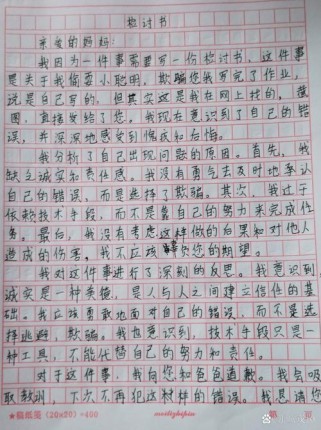 检讨书
亲爱的妈妈：
我因为一件事需要写一份检讨书，这件事
是关于我偷耍小聪明，欺骗您我写完了作业，
说是自己写的，但其实这是我在网上找的。截
图，直接发给了您。我现在意识到了自己的错
误，并深深地感受到愧疚和后悔。
我分析了自己出现问题的原因。首先，我
缺乏诚实和责任感。我没有勇气去及时地承认
自己的错误，而是选择了欺骗。其次，我过于
依赖技术手段，而不是靠自己的努力来完成任
务。最后，我没有考虑这样做的后果和对他人
造成的伤害。我不应该辜负您的期望。
我对这件事进行了深刻的反思。我意识到，
诚实是一种美德，是人与人之间建立信任的基
础。我应该勇敢地面对自己的错误，而不是选
择逃避，欺骗。我也意识到，技术手段只是一
种工具，不能代替自己的努力和责任。
对于这件事，我向您和爸爸道歉。我会吸
取教训，下次不再犯这样的错误。我恳请您
(20×20)=400